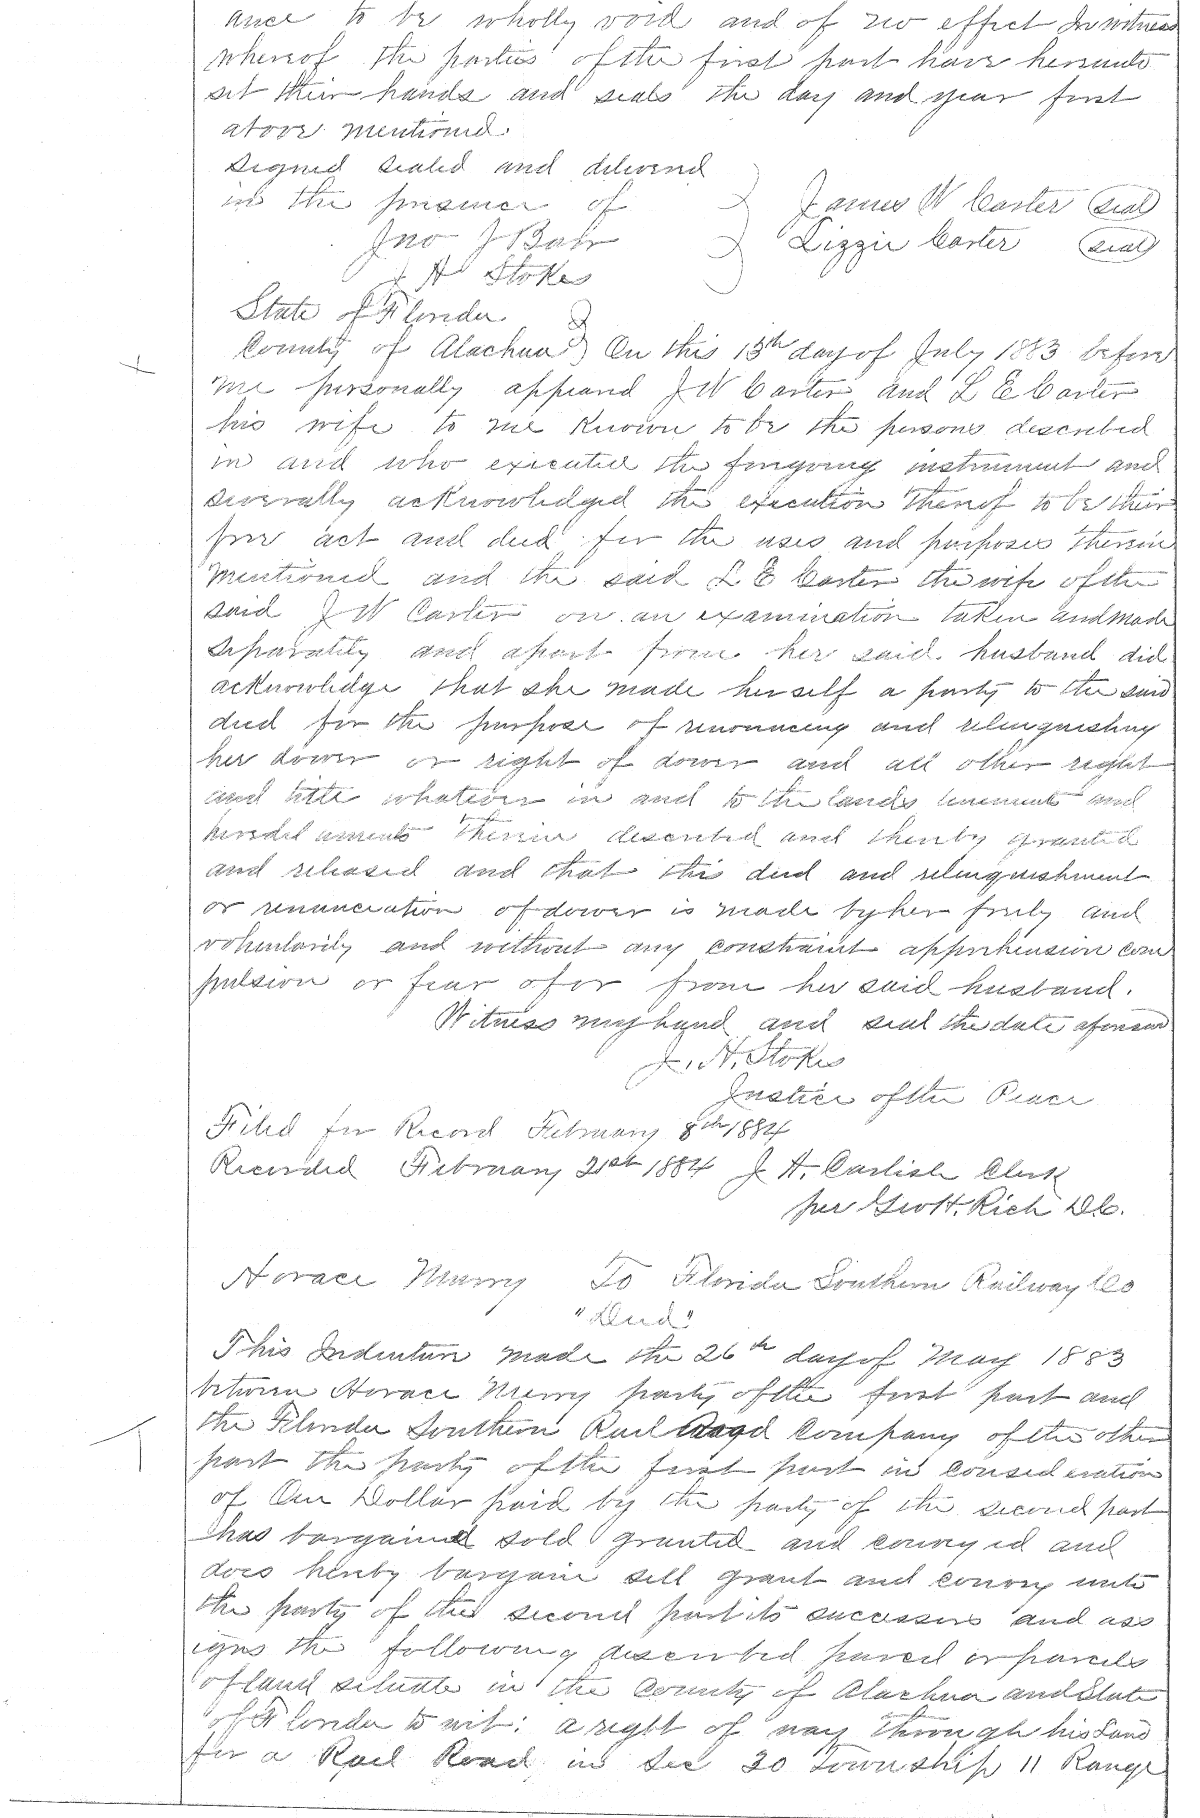 ance to be wholly void and of no effect In witness
whereof the parties of the first part have hereunto
set their hands and seals the day and year first
above mentioned.
signed sealed and delivered
in the presence of James W Carter (seal)
Jno J Barr Lizzie Carter (seal)
J H Stokes
State of Florida
County of Alachua On this 13th day of July 1883 before
me personally appeard J W Carter and L E Carter
his wife to me known to be the persons described
in and who executed the foregoing instrument and
severally acknowledged the execution thereof to be their
free act and deed for the uses and purposes therein
mentioned and the said L E Carter the wife of the
said J W Carter on an examination taken and made
separately and apart from her said husband did
acknowledge that she made herself a party to the said
deed for the purpose of renouncing and relinquishing
her dower or right of dower and all other right
and title whatever in and to the lands tenements and
heredit aments therein described and thereby granted
and released and that the deed and relinquishment
or renunciation of dower is made by her freely and
voluntarily and without any constraint apprehension com
pulsion or fear of or from her said husband.
Witness my hand and seal the date aforesaid
J. H. Stokes
Justice of the Peace
Filed for Record February 8th 1884
Recorded February 21st 1884 J A. Carlisle Clerk
per Geo H. Rich D.C.
Horace Merry To Florida Southern Railway Co
"Deed"
This Indenture made the 26th day of May 1883
between Horace Merry party of the first part and
the Florida Southern Rail Road Company of the other
part the party of the first part in consideration
of One Dollar paid by the party of the second part
has bargained sold granted and conveyed and
does hereby bargain sell grant and convey unto
the party of the second part its successors and ass
igns the following described parcel or parcels
of land situate in the County of Alachua and State
of Florida to wit: a right of way through his Land
for a Rail Road in Sec 30 Township 11 Range